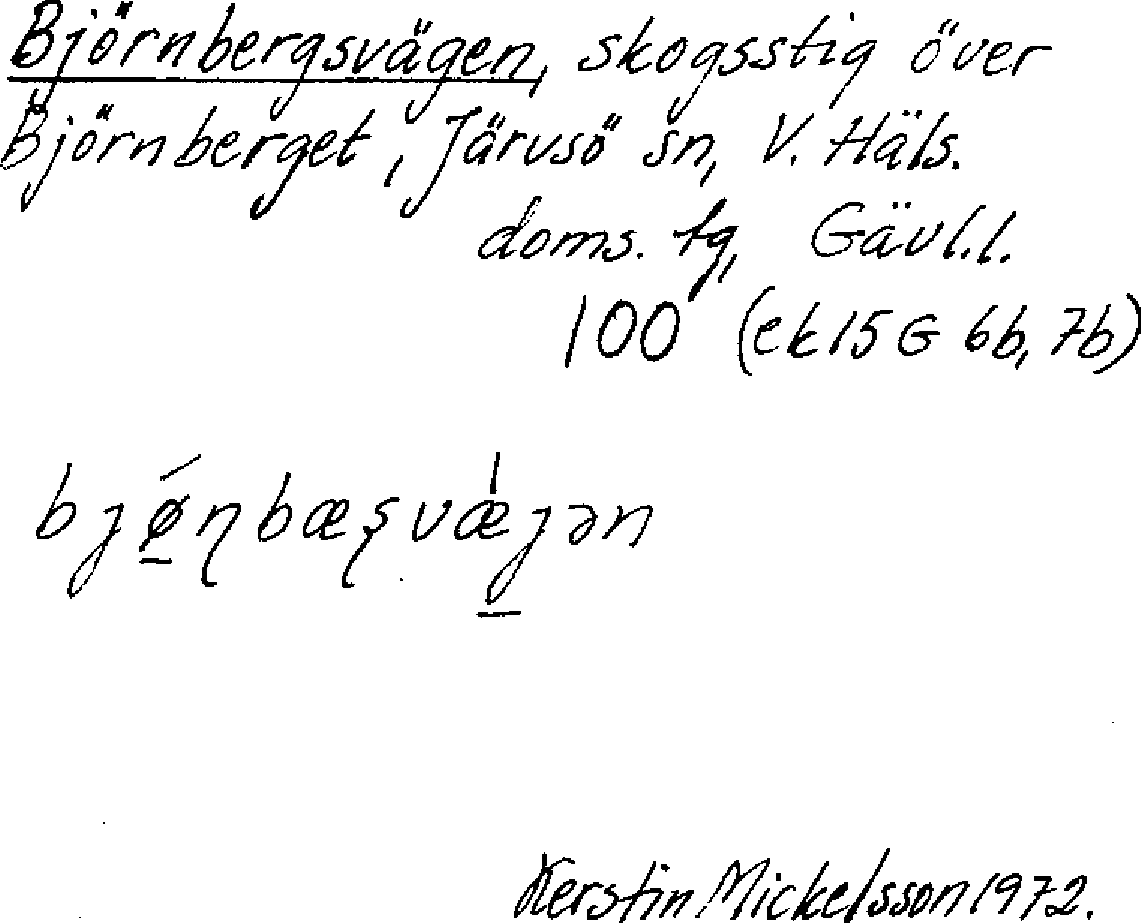 Björnbergsvägen, skogsstig över
Björnberget, Järvsö sn, V. Häls.
doms. tg, Gävl.l.
100 (ek 15 G 6b, 7b)
bjǿ̱ɳbæʂvæ̍j̱ən
Kerstin Mickelsson 1972.